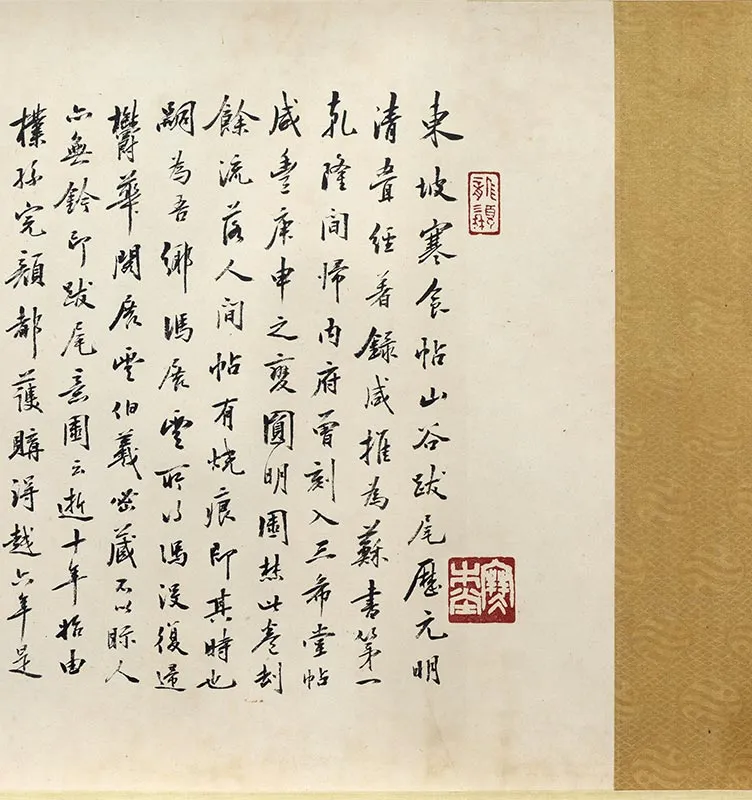 東坡寒食帖山谷跋尾歷元明
清疊經著錄咸推為蘇書第一
乾隆間歸內府曾刻入三希堂帖
咸豐庚申之變圓明園焚此卷刦
餘流落人間帖有燒痕即其時也
嗣為吾鄉馮展雲所得馮沒復歸
鬱華閣展雲伯羲密藏不以眎人
亦無鈐印跋尾意園云逝十年始由
樸孫完顏都護購得越六年是